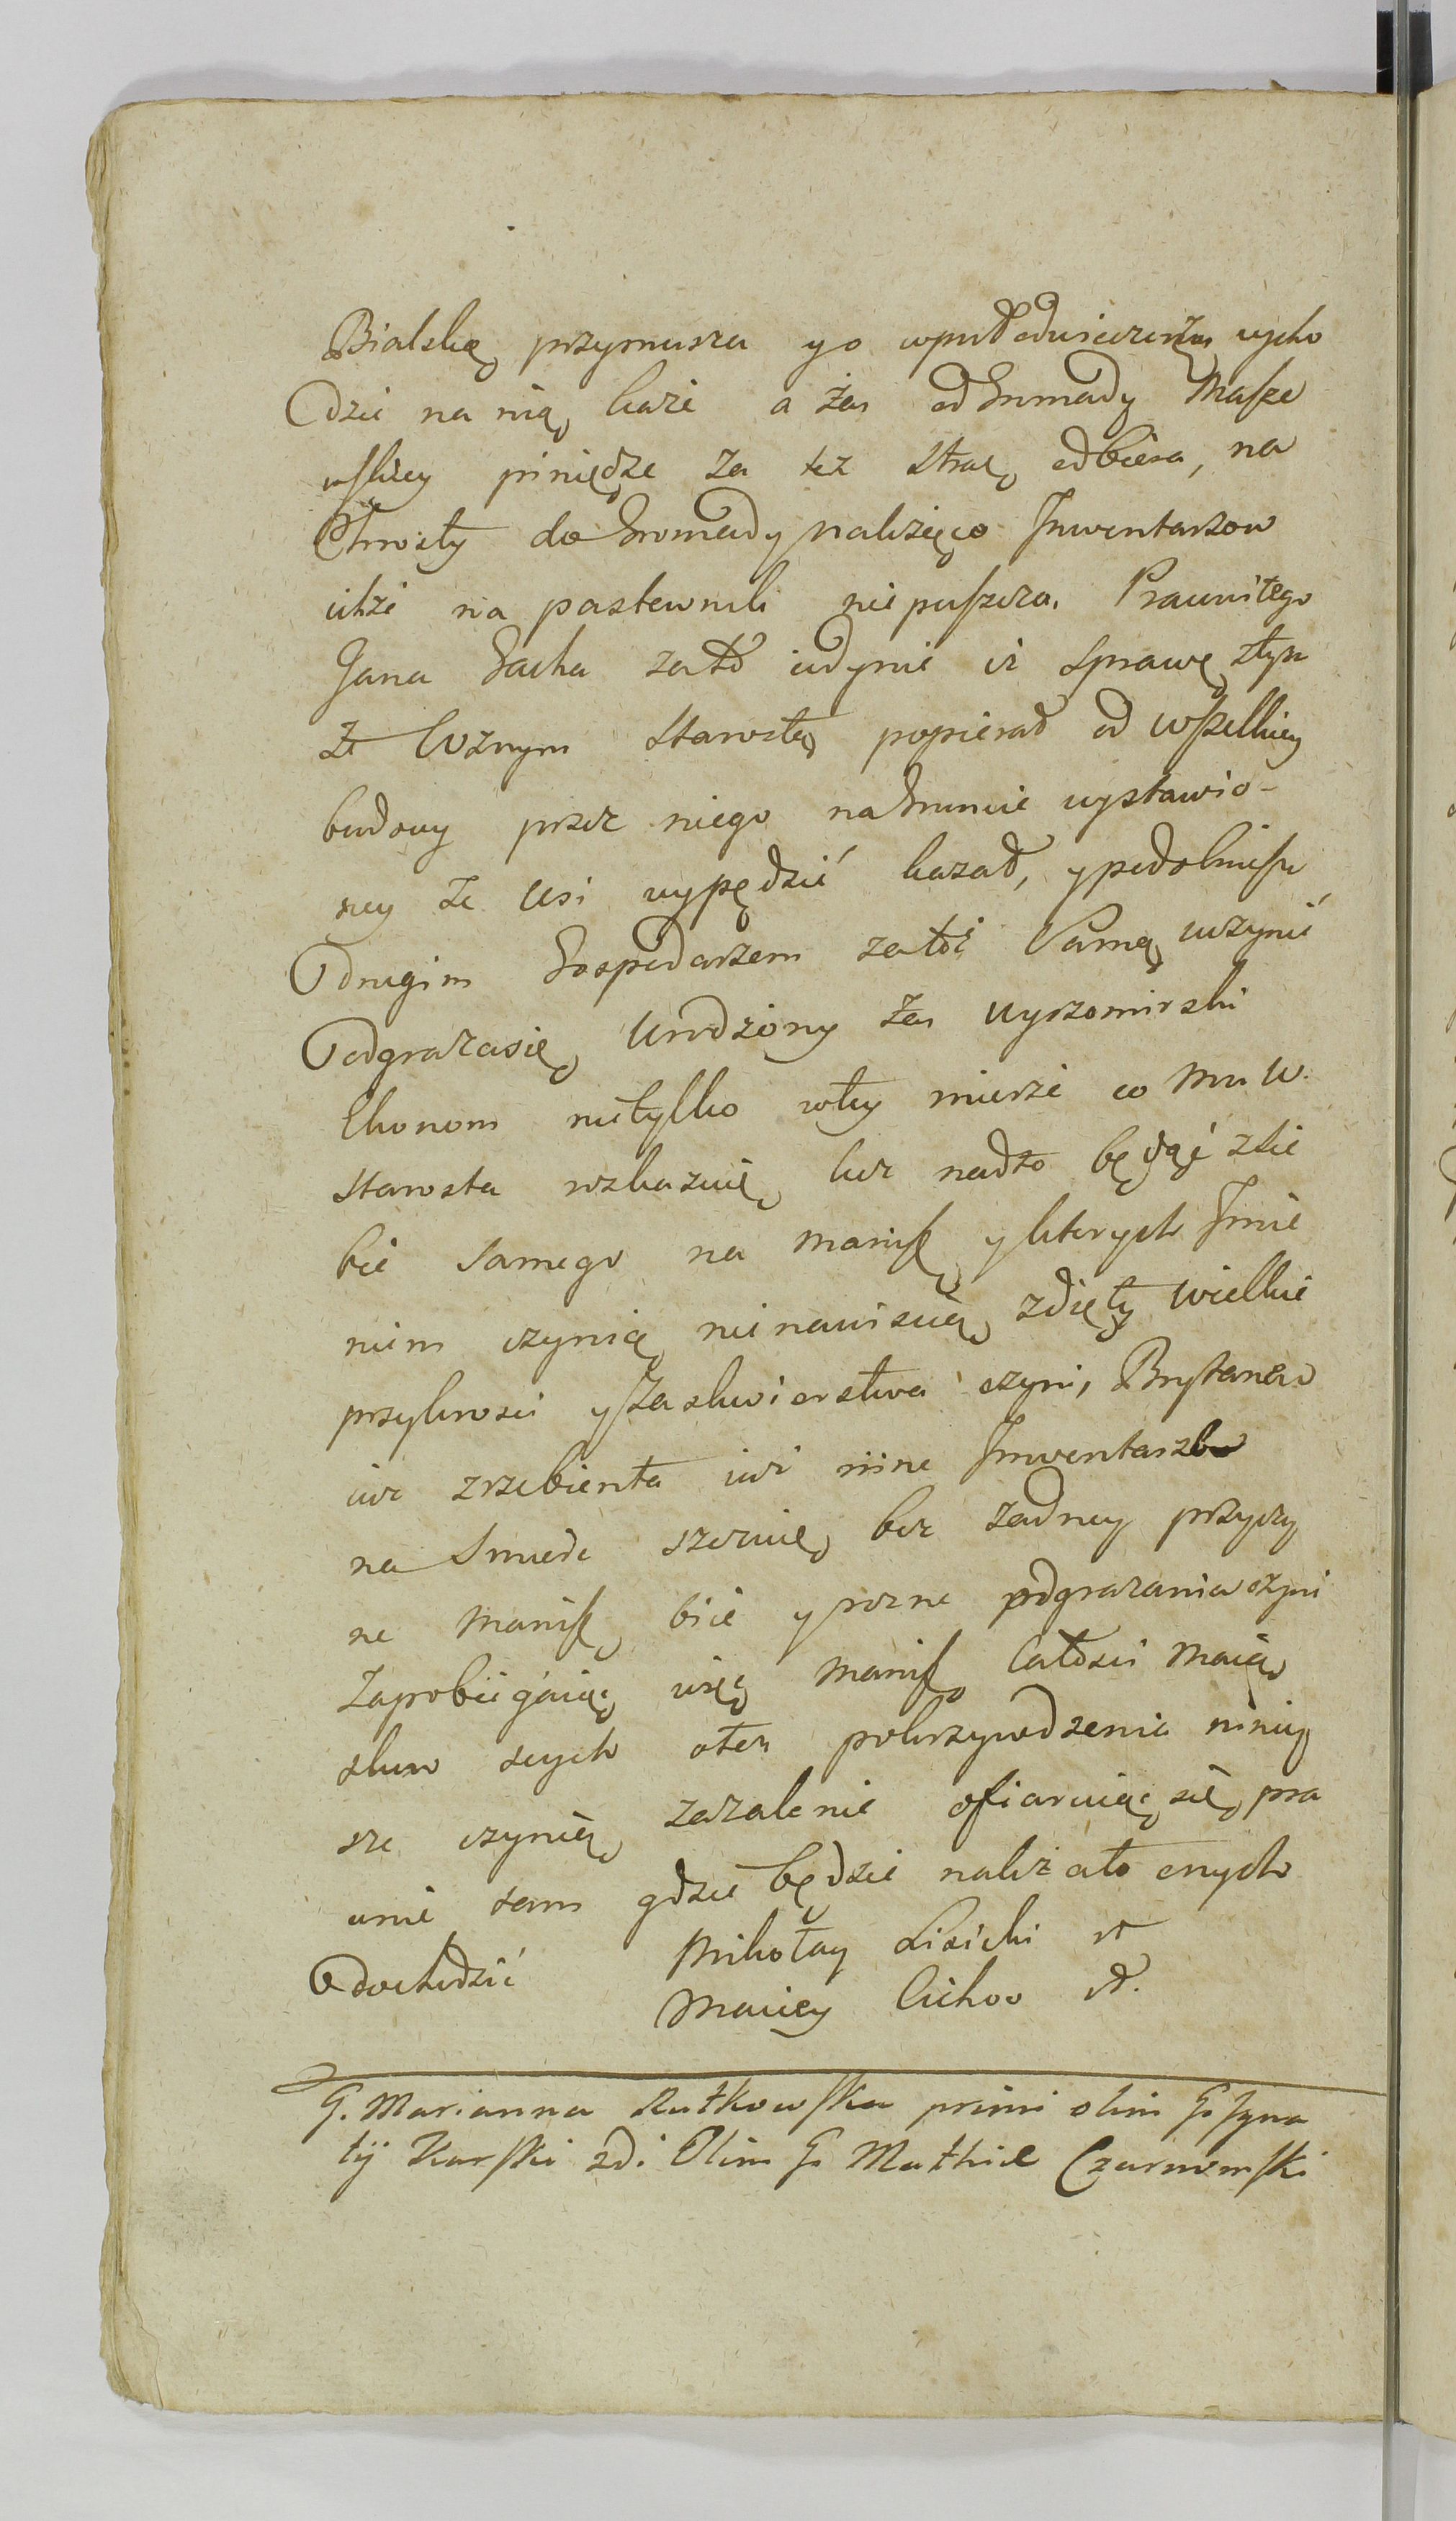 Bialskę przymusza y o wpuł odwieczerza wycho
dzić na nią każe a zas od Gromady Masze
wskiey piniędze za też Straż odbiera, na
Chrosty do Gromady należące Inwentarzow
także na pastewnik niepuszcza. Pracowitego
Jana Gacha zato iedynie iż Sprawę z tym
że Wznym Starostą popierał od wszelkiey
budowy przez niego na Gruncie wystawio-
ney ze wsi wypędzić kazał, y podobnież
drugim Gospodarzem zatoż Samą uczynić
odgrażasię, Urodzony zas Wyszomirski
Ekonom nietylko w tey mierze co mu W.
Starosta rozkazuie, lecz nadto będąc zsie
bie samego na maniff. y ktorych Imie
niem czynią nienawiścią zdięty wielkie
przykrosci y Prześladowania czyni, Brytanem
iuż zrzebienta iuż inne Inwentarze
na Smierć szczuie, bez żadney przyczy
ny maniff. biie y rozne odgrażania czyni
Zapobiegaiąc więc maniff. Całosci Maiąt
skow swych oten pokrzywdzenie niniey
sze czynią zażalenie ofiaruiąc się pra
wnie tam gdzie będzie należało onych
dochodzić Mikołay Lisicki
Maciey Cichow
G. Marianna Rutkowska primi olim G. Igna
tÿ Karski 2di Olim G. Mathiæ Czarnomski